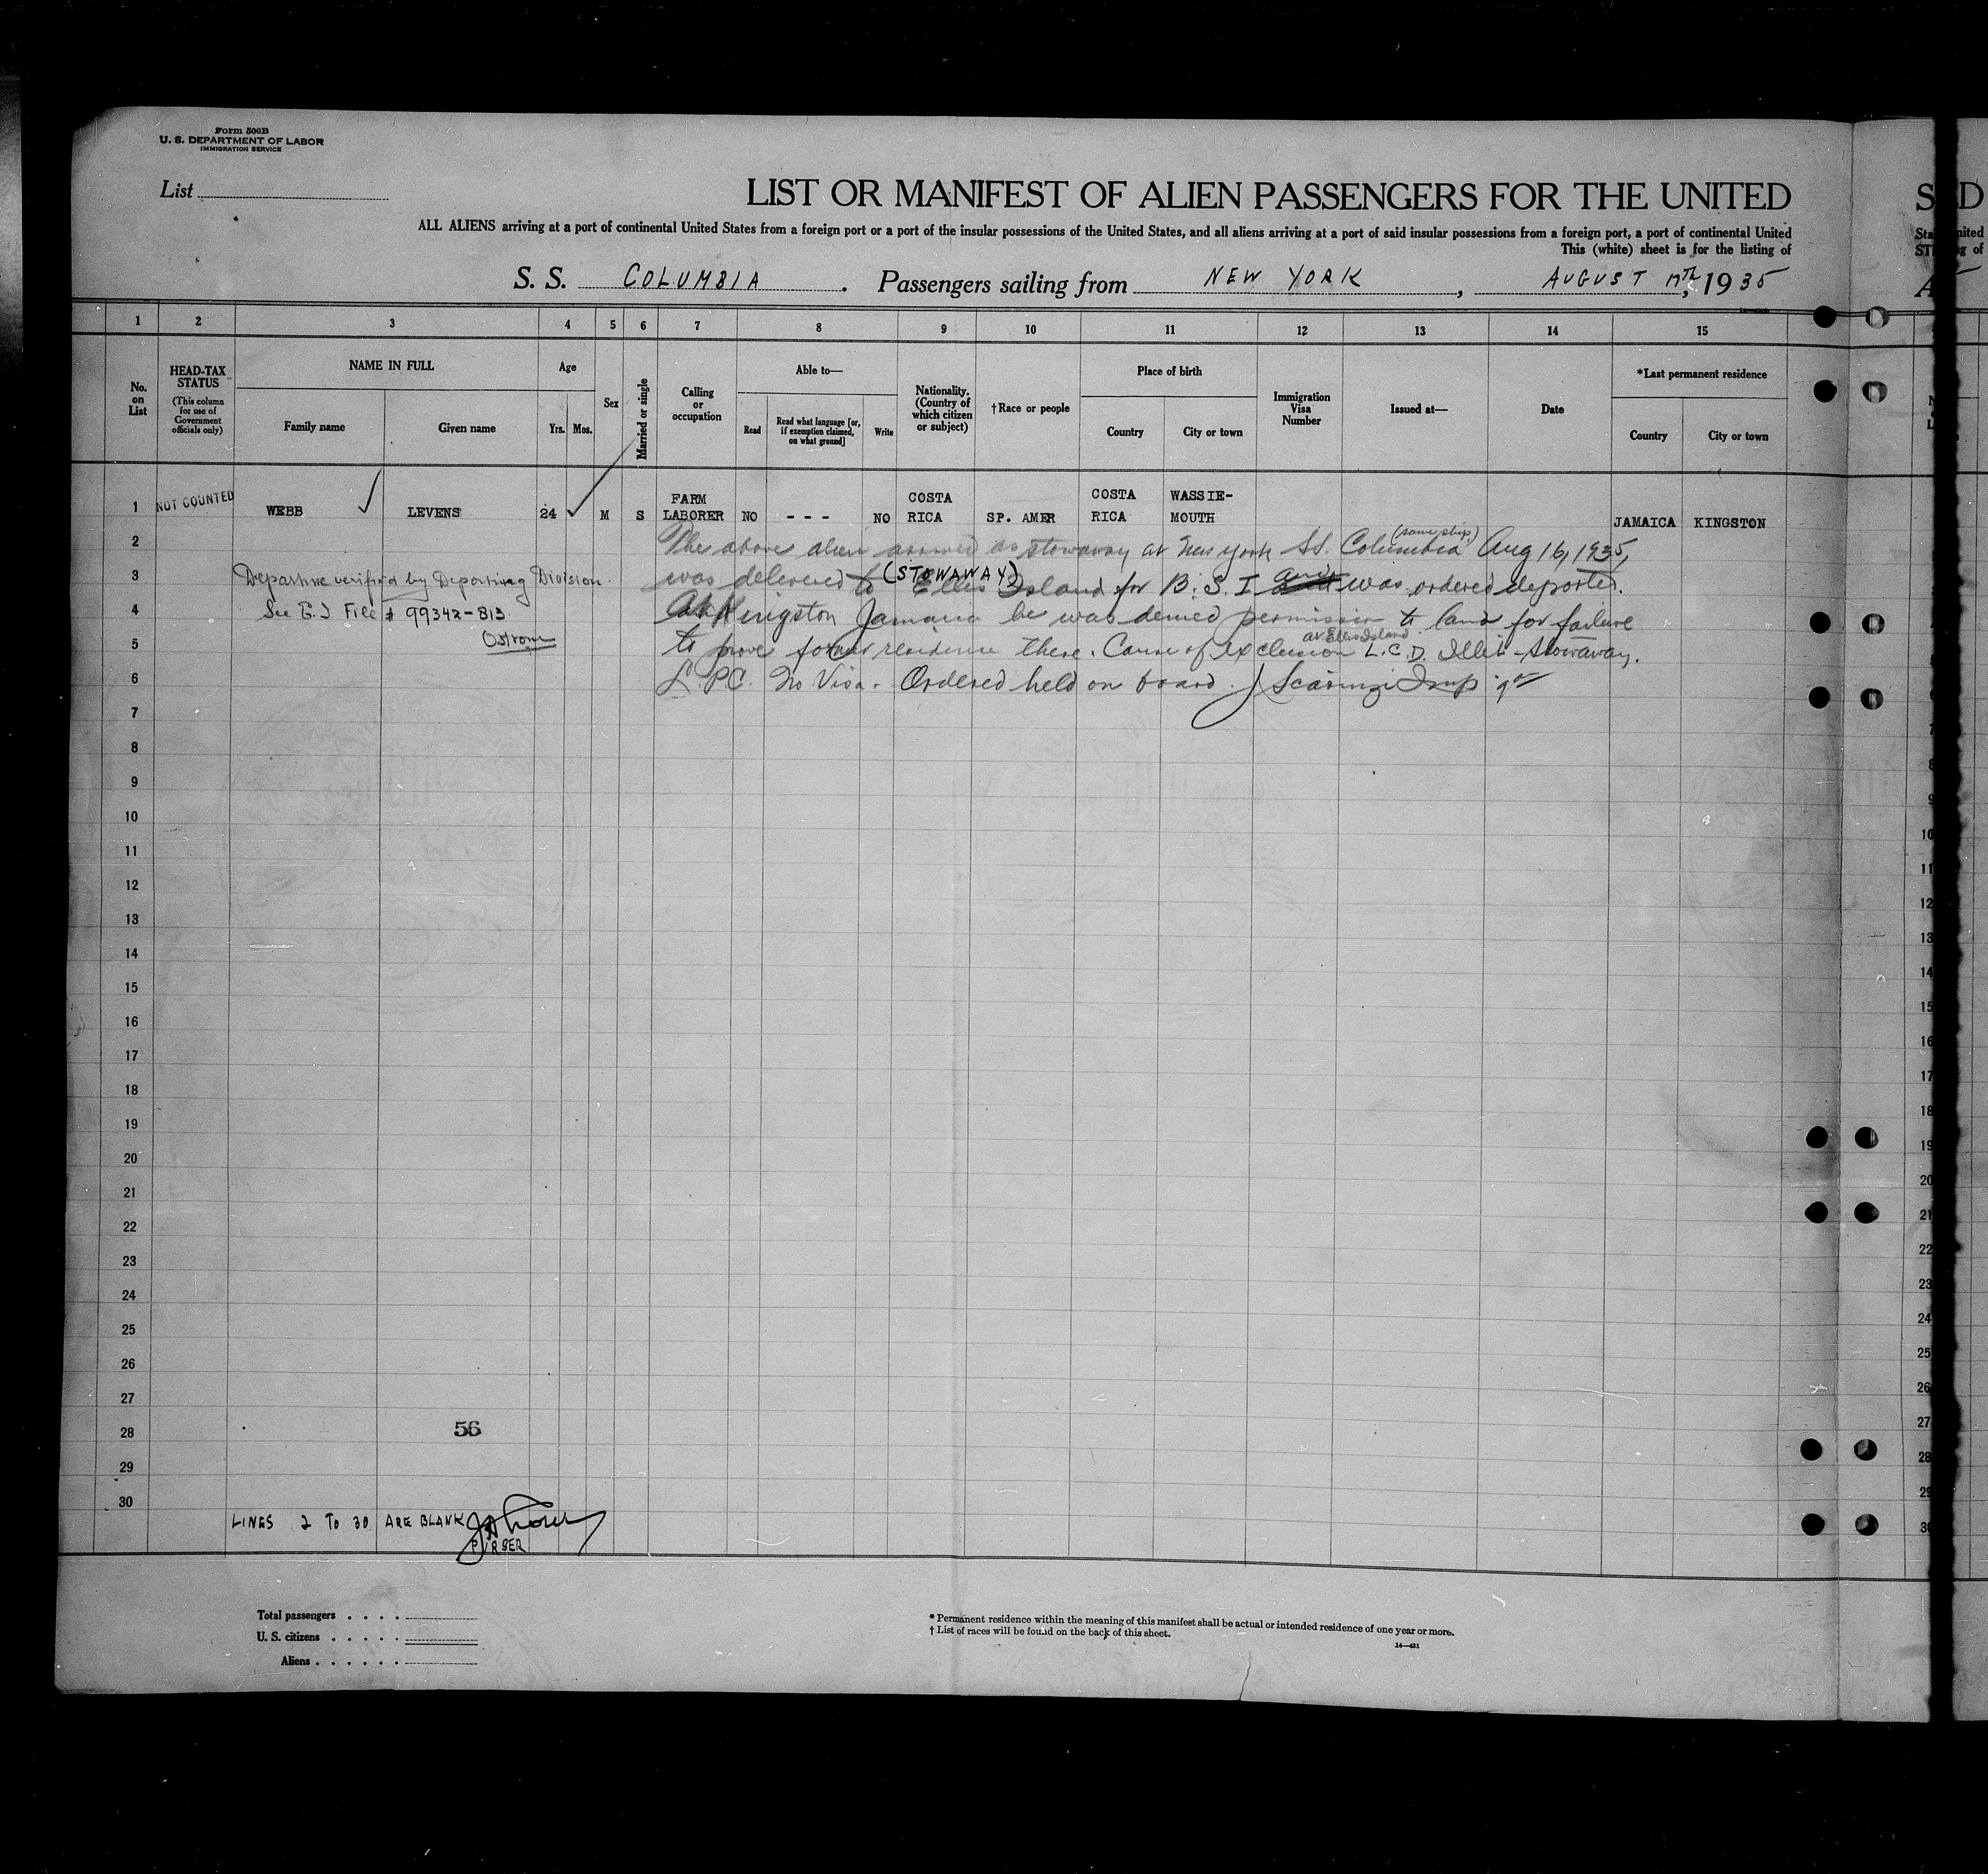 Form 500B
U. S. DEPARTMENT OF LABOR
IMMIGRATION SERVICE
List
LIST OR MANIFEST OF ALIEN PASSENGERS FOR THE UNITED
ALL ALIENS arriving at a port of continental United States from a foreign port or a port of the insular possessions of the United States, and all aliens arriving at a port of said insular possessions from a foreign port, a port of continental United
This (white) sheet is for the listing of
S. S. COLUMBIA . Passengers sailing from NEW YORK , AUGUST 17th, 1935
1 2 3 4 5 6 7 8 9 10 11 12 13 14 15
No. on List
HEAD-TAX STATUS
(This column for use of Government officials only)
NAME IN FULL
Family name
Given name
Age
Yrs. Mos.
Sex
Married or single
Calling or occupation
Able to—
Read
Read what language [or, if exemption claimed, on what ground]
Write
Nationality. (Country of which citizen or subject)
†Race or people
Place of birth
Country
City or town
Immigration Visa Number
Issued at—
Date
*Last permanent residence
Country
City or town
1 NOT COUNTED WEBB LEVENS 24 M S FARM LABORER NO - - - NO COSTA RICA SP. AMER COSTA RICA WASSIE-MOUTH JAMAICA KINGSTON
2 The above alien arrived as stowaway at New York SS. Columbia (same ship) Aug 16, 1935,
3 Departure verified by Deporting Division.
(STOWAWAY)
was delivered to Ellis Island for B. S. I and was ordered deported.
4 See E.I File # 99342-813
At Kingston Jamaica he was denied permission to land for failure
5 Ostrom
to prove former residence there. Cause of exclusion at Ellis Island L.C.D. Illit - Stowaway.
6 L.P.C. No Visa. Ordered held on board. J Scaringi Insp
7
8
9
10
11
12
13
14
15
16
17
18
19
20
21
22
23
24
25
26
27
28 56
29
30
LINES 2 TO 30 ARE BLANK
PURSER
Total passengers . . . .
U. S. citizens . . . . .
Aliens . . . . . .
* Permanent residence within the meaning of this manifest shall be actual or intended residence of one year or more.
† List of races will be found on the back of this sheet.
14—431